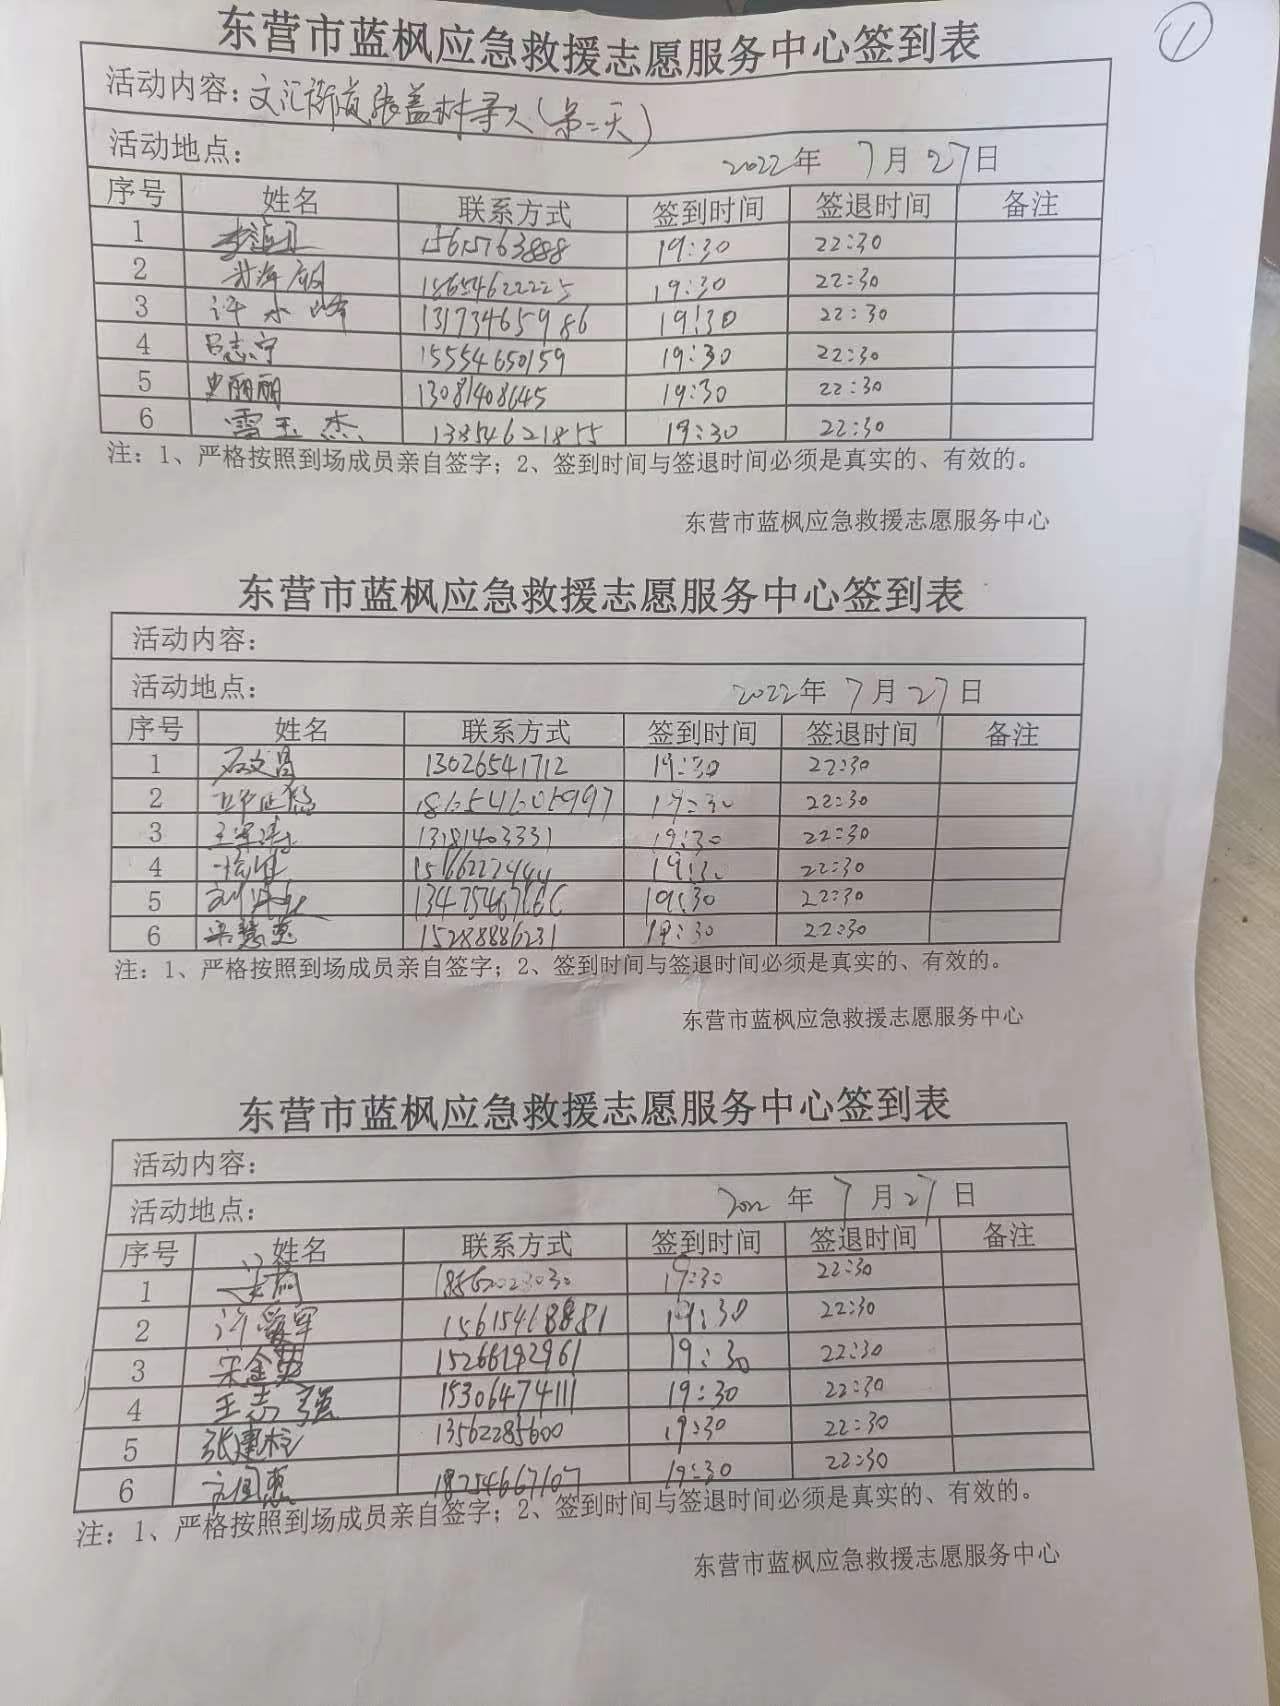 ①
东营市蓝枫应急救援志愿服务中心签到表
活动内容：文汇街道张盖村寻人（第二天）
活动地点： 2022年 7月 27日
序号 姓名 联系方式 签到时间 签退时间 备注
1 15615763888 19:30 22:30
2 18654622225 19:30 22:30
3 许永峰 13173465986 19:30 22:30
4 吕志宁 15554650159 19:30 22:30
5 史丽丽 13081408645 19:30 22:30
6 雷玉杰 13854621855 19:30 22:30
注：1、严格按照到场成员亲自签字；2、签到时间与签退时间必须是真实的、有效的。
东营市蓝枫应急救援志愿服务中心
东营市蓝枫应急救援志愿服务中心签到表
活动内容：
活动地点： 2022年 7月 27日
序号 姓名 联系方式 签到时间 签退时间 备注
1 石文昌 13026541712 19:30 22:30
2 19:30 22:30
3 13181403331 19:30 22:30
4 19:30 22:30
5 19:30 22:30
6 15288886231 19:30 22:30
注：1、严格按照到场成员亲自签字；2、签到时间与签退时间必须是真实的、有效的。
东营市蓝枫应急救援志愿服务中心
东营市蓝枫应急救援志愿服务中心签到表
活动内容：
活动地点： 2022年 7月 27日
序号 姓名 联系方式 签到时间 签退时间 备注
1 19:30 22:30
2 许爱军 15615418881 19:30 22:30
3 宋金英 15266192961 19:30 22:30
4 王志强 15306474111 19:30 22:30
5 张建柱 13562285600 19:30 22:30
6 18254667107 19:30 22:30
注：1、严格按照到场成员亲自签字；2、签到时间与签退时间必须是真实的、有效的。
东营市蓝枫应急救援志愿服务中心